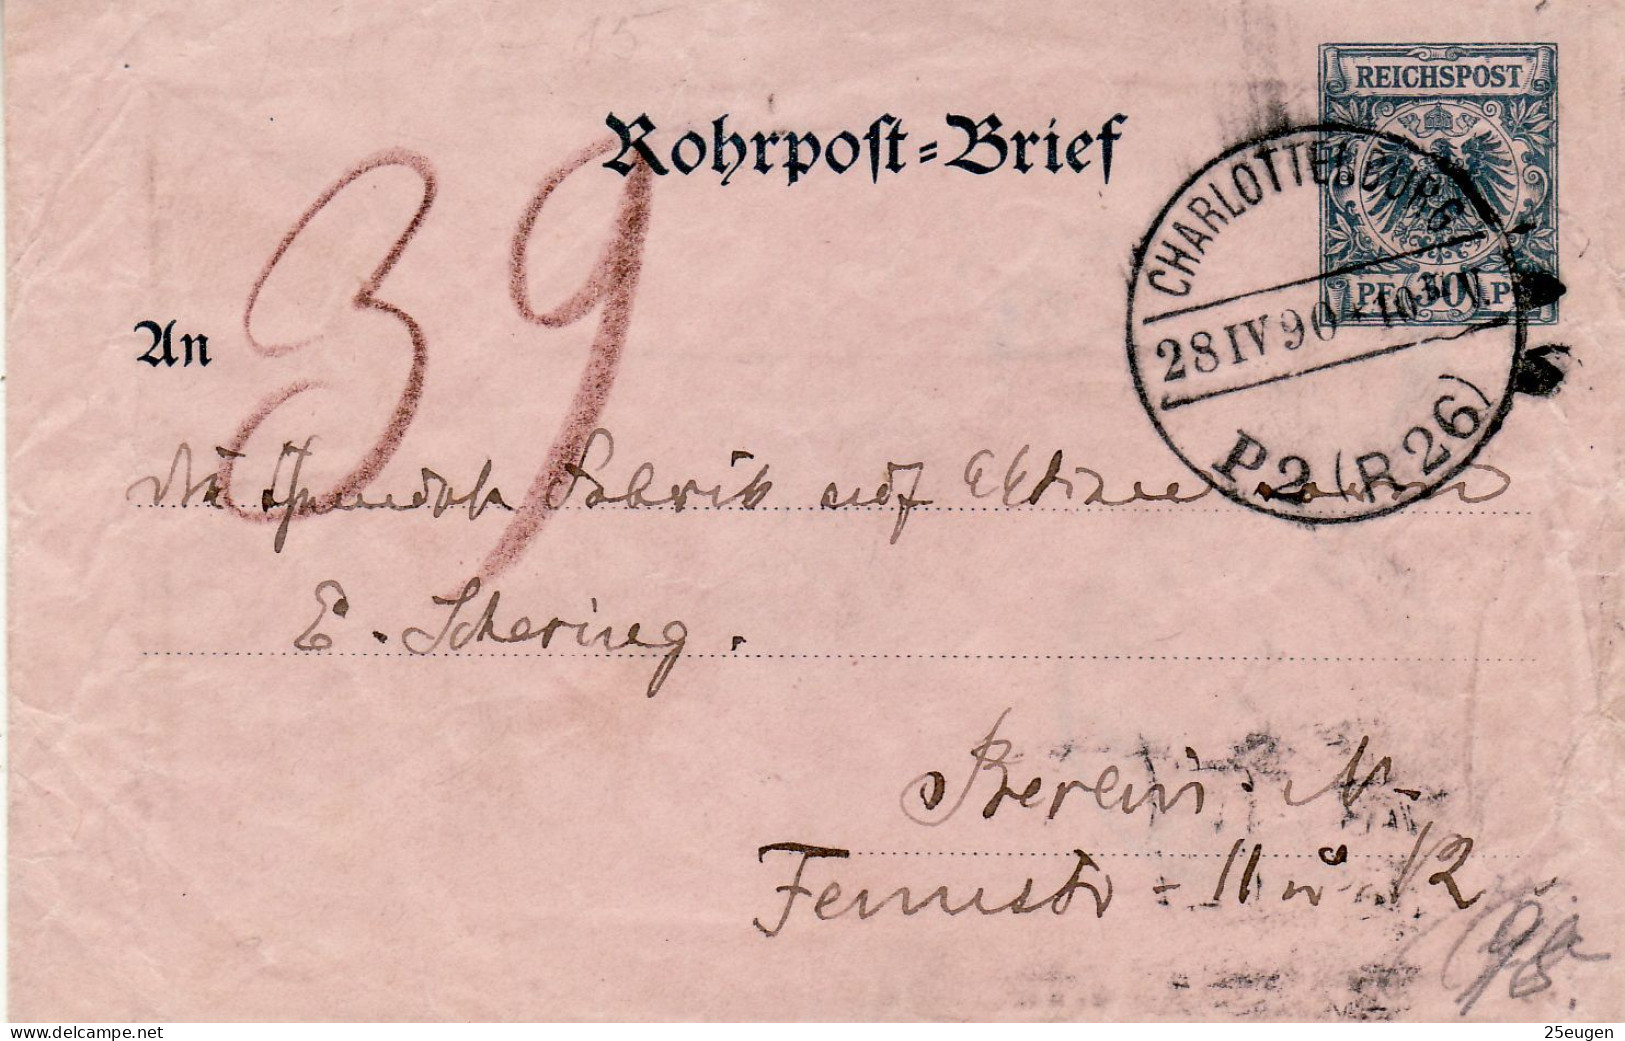 15
REICHSPOST
Rohrpoſt=Brief
CHARLOTTENBURG
PF. 30 PF.
28 IV 90 * 10 ¾ V.
P2 (R26)
39
An
die chemische Fabrik auf Aktien
E. Schering.
Berlin. N.
Fennstr. 11 u 12
www.delcampe.net
25eugen